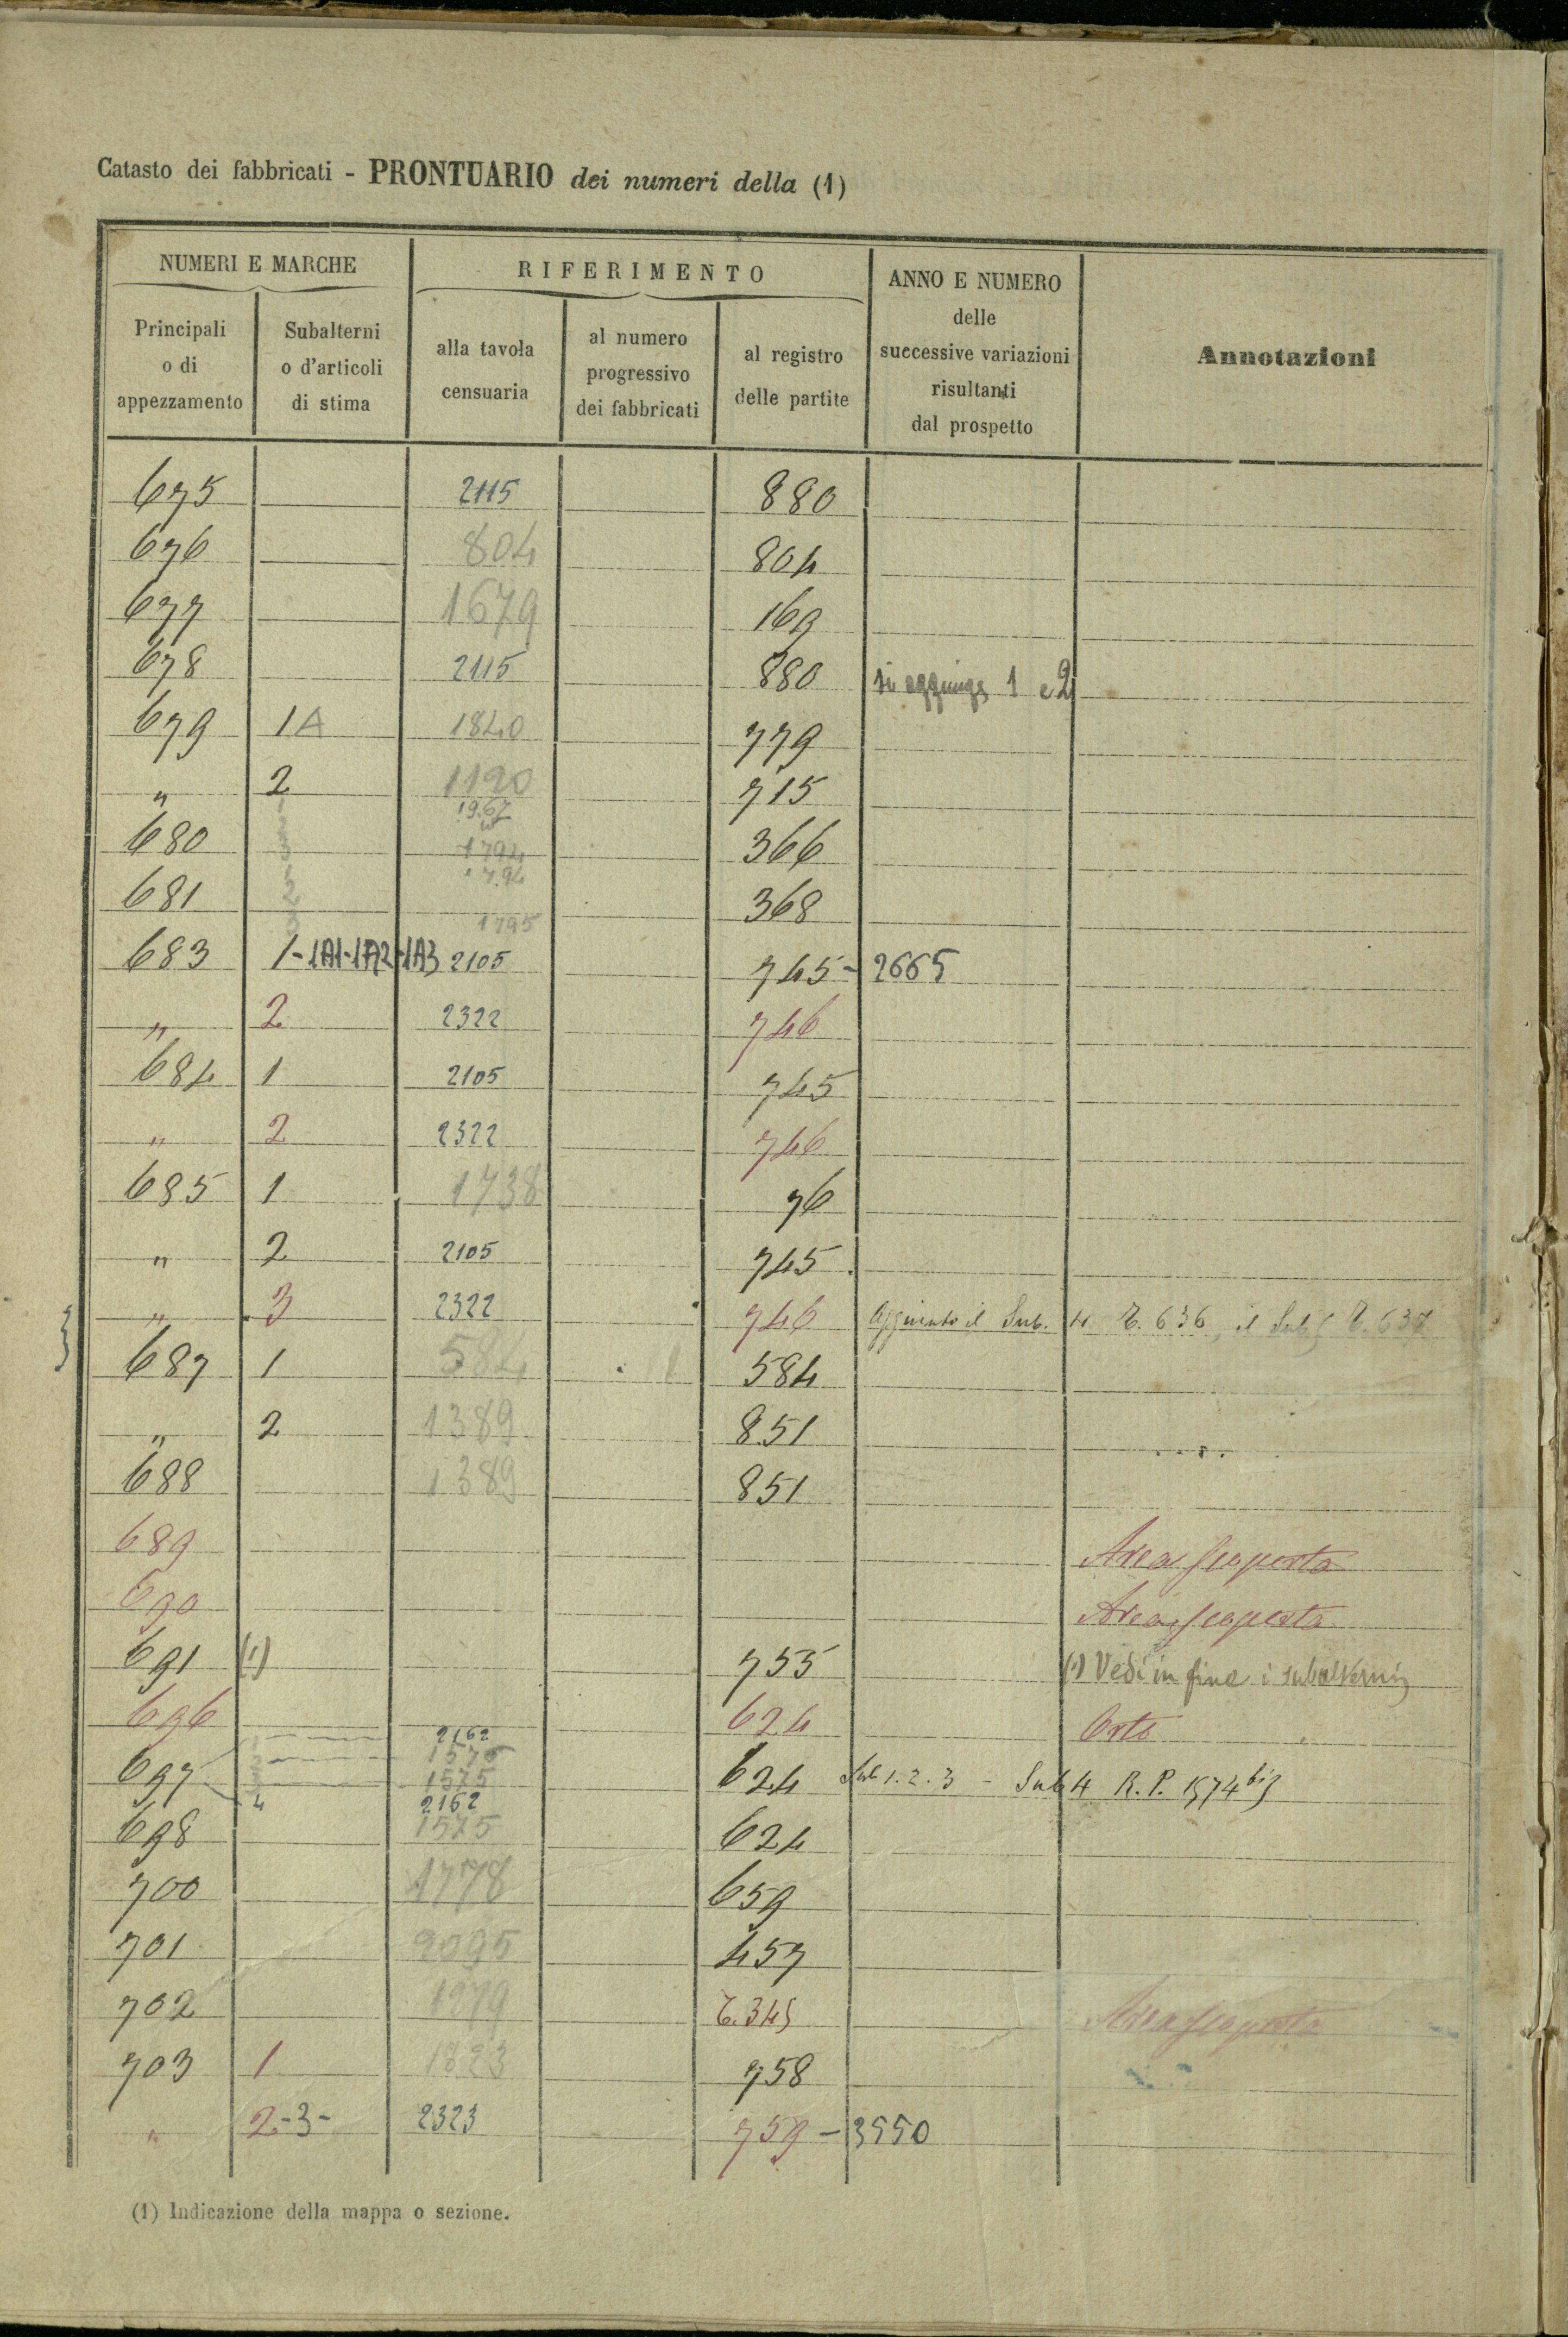 Catasto dei fabbricati - PRONTUARIO dei numeri della (1)
NUMERI E MARCHE
RIFERIMENTO
ANNO E NUMERO
delle
successive variazioni
risultanti
dal prospetto
Annotazioni
Principali
o di
appezzamento
Subalterni
o d'articoli
di stima
alla tavola
censuaria
al numero
progressivo
dei fabbricati
al registro
delle partite
675 2115 880
676 804 804
677 1679 169
678 2115 880 si aggiunge 1 e 2
679 1A 1840 779
" 2 1120 715
1967
680 3 1794 366
1794
681 2 368
1795
683 1-1A1-1A2-1A3 2105 745- 2665
" 2 2322 746
684 1 2105 745
" 2 2322 746
685 1 1738 76
" 2 2105 745
" 3 2322 746 aggiunto il Sub. 4 T. 636, il Sub 5 T. 637
687 1 584 584
" 2 1389 851
688 1389 851
689 Area scoperta
690 Area scoperta
691 (1) 755 (1) Vedi in fine i subalterni
696 624 Orto
2162
1575
697 1575 624 Sub 1.2.3 - Sub 4 R.P. 1574 bis
4 2162
698 1575 624
700 1778 659
701 2095 457
702 1279 T. 345 Area scoperta
703 1 1823 758
" 2-3- 2323 759 - 3550
(1) Indicazione della mappa o sezione.